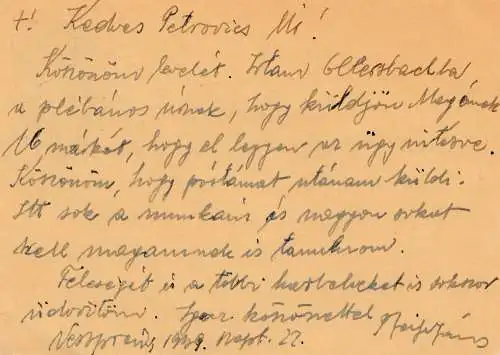 +! Kedves Petrovics Úr!
Köszönöm levelét. Írtam Otterbachba
a plébános úrnak, hogy küldjön Magának
16 márkát, hogy el legyen az ügy intézve.
Köszönöm, hogy póstámat utánam küldi.
Itt sok a munkám és nagyon sokat
kell magamnak is tanulnom.
Feleségét és a többi hazbelieket is sokszor
üdvözlöm. Igaz köszönettel
Veszprém, 1949. szept. 27.